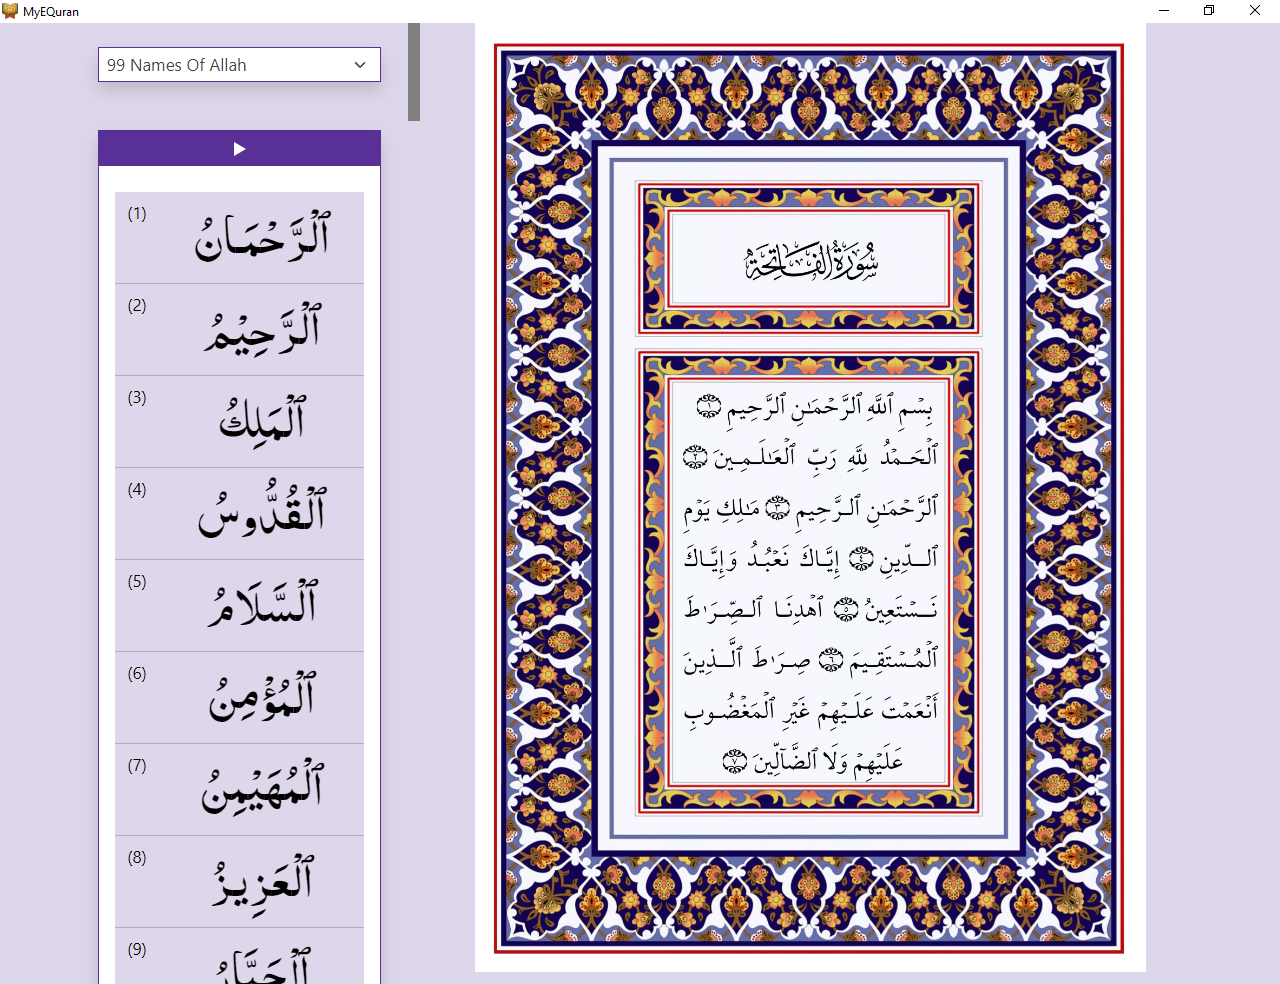 MyEQuran
99 Names Of Allah
(1)
ٱلْرَّحْمَـانُ
(2)
ٱلْرَّحِيْمُ
(3)
ٱلْمَلِكُ
(4)
ٱلْقُدُّوسُ
(5)
ٱلْسَّلَامُ
(6)
ٱلْمُؤْمِنُ
(7)
ٱلْمُهَيْمِنُ
(8)
ٱلْعَزِيزُ
(9)
سُورَةُ الفَاتِحَةِ
بِسْمِ ٱللَّهِ ٱلرَّحْمَـٰنِ ٱلرَّحِيمِ ١
ٱلْحَمْدُ لِلَّهِ رَبِّ ٱلْعَـٰلَمِينَ ٢
ٱلرَّحْمَـٰنِ ٱلرَّحِيمِ ٣ مَـٰلِكِ يَوْمِ
ٱلدِّينِ ٤ إِيَّاكَ نَعْبُدُ وَإِيَّاكَ
نَسْتَعِينُ ٥ ٱهْدِنَا ٱلصِّرَٰطَ
ٱلْمُسْتَقِيمَ ٦ صِرَٰطَ ٱلَّذِينَ
أَنْعَمْتَ عَلَيْهِمْ غَيْرِ ٱلْمَغْضُوبِ
عَلَيْهِمْ وَلَا ٱلضَّآلِّينَ ٧